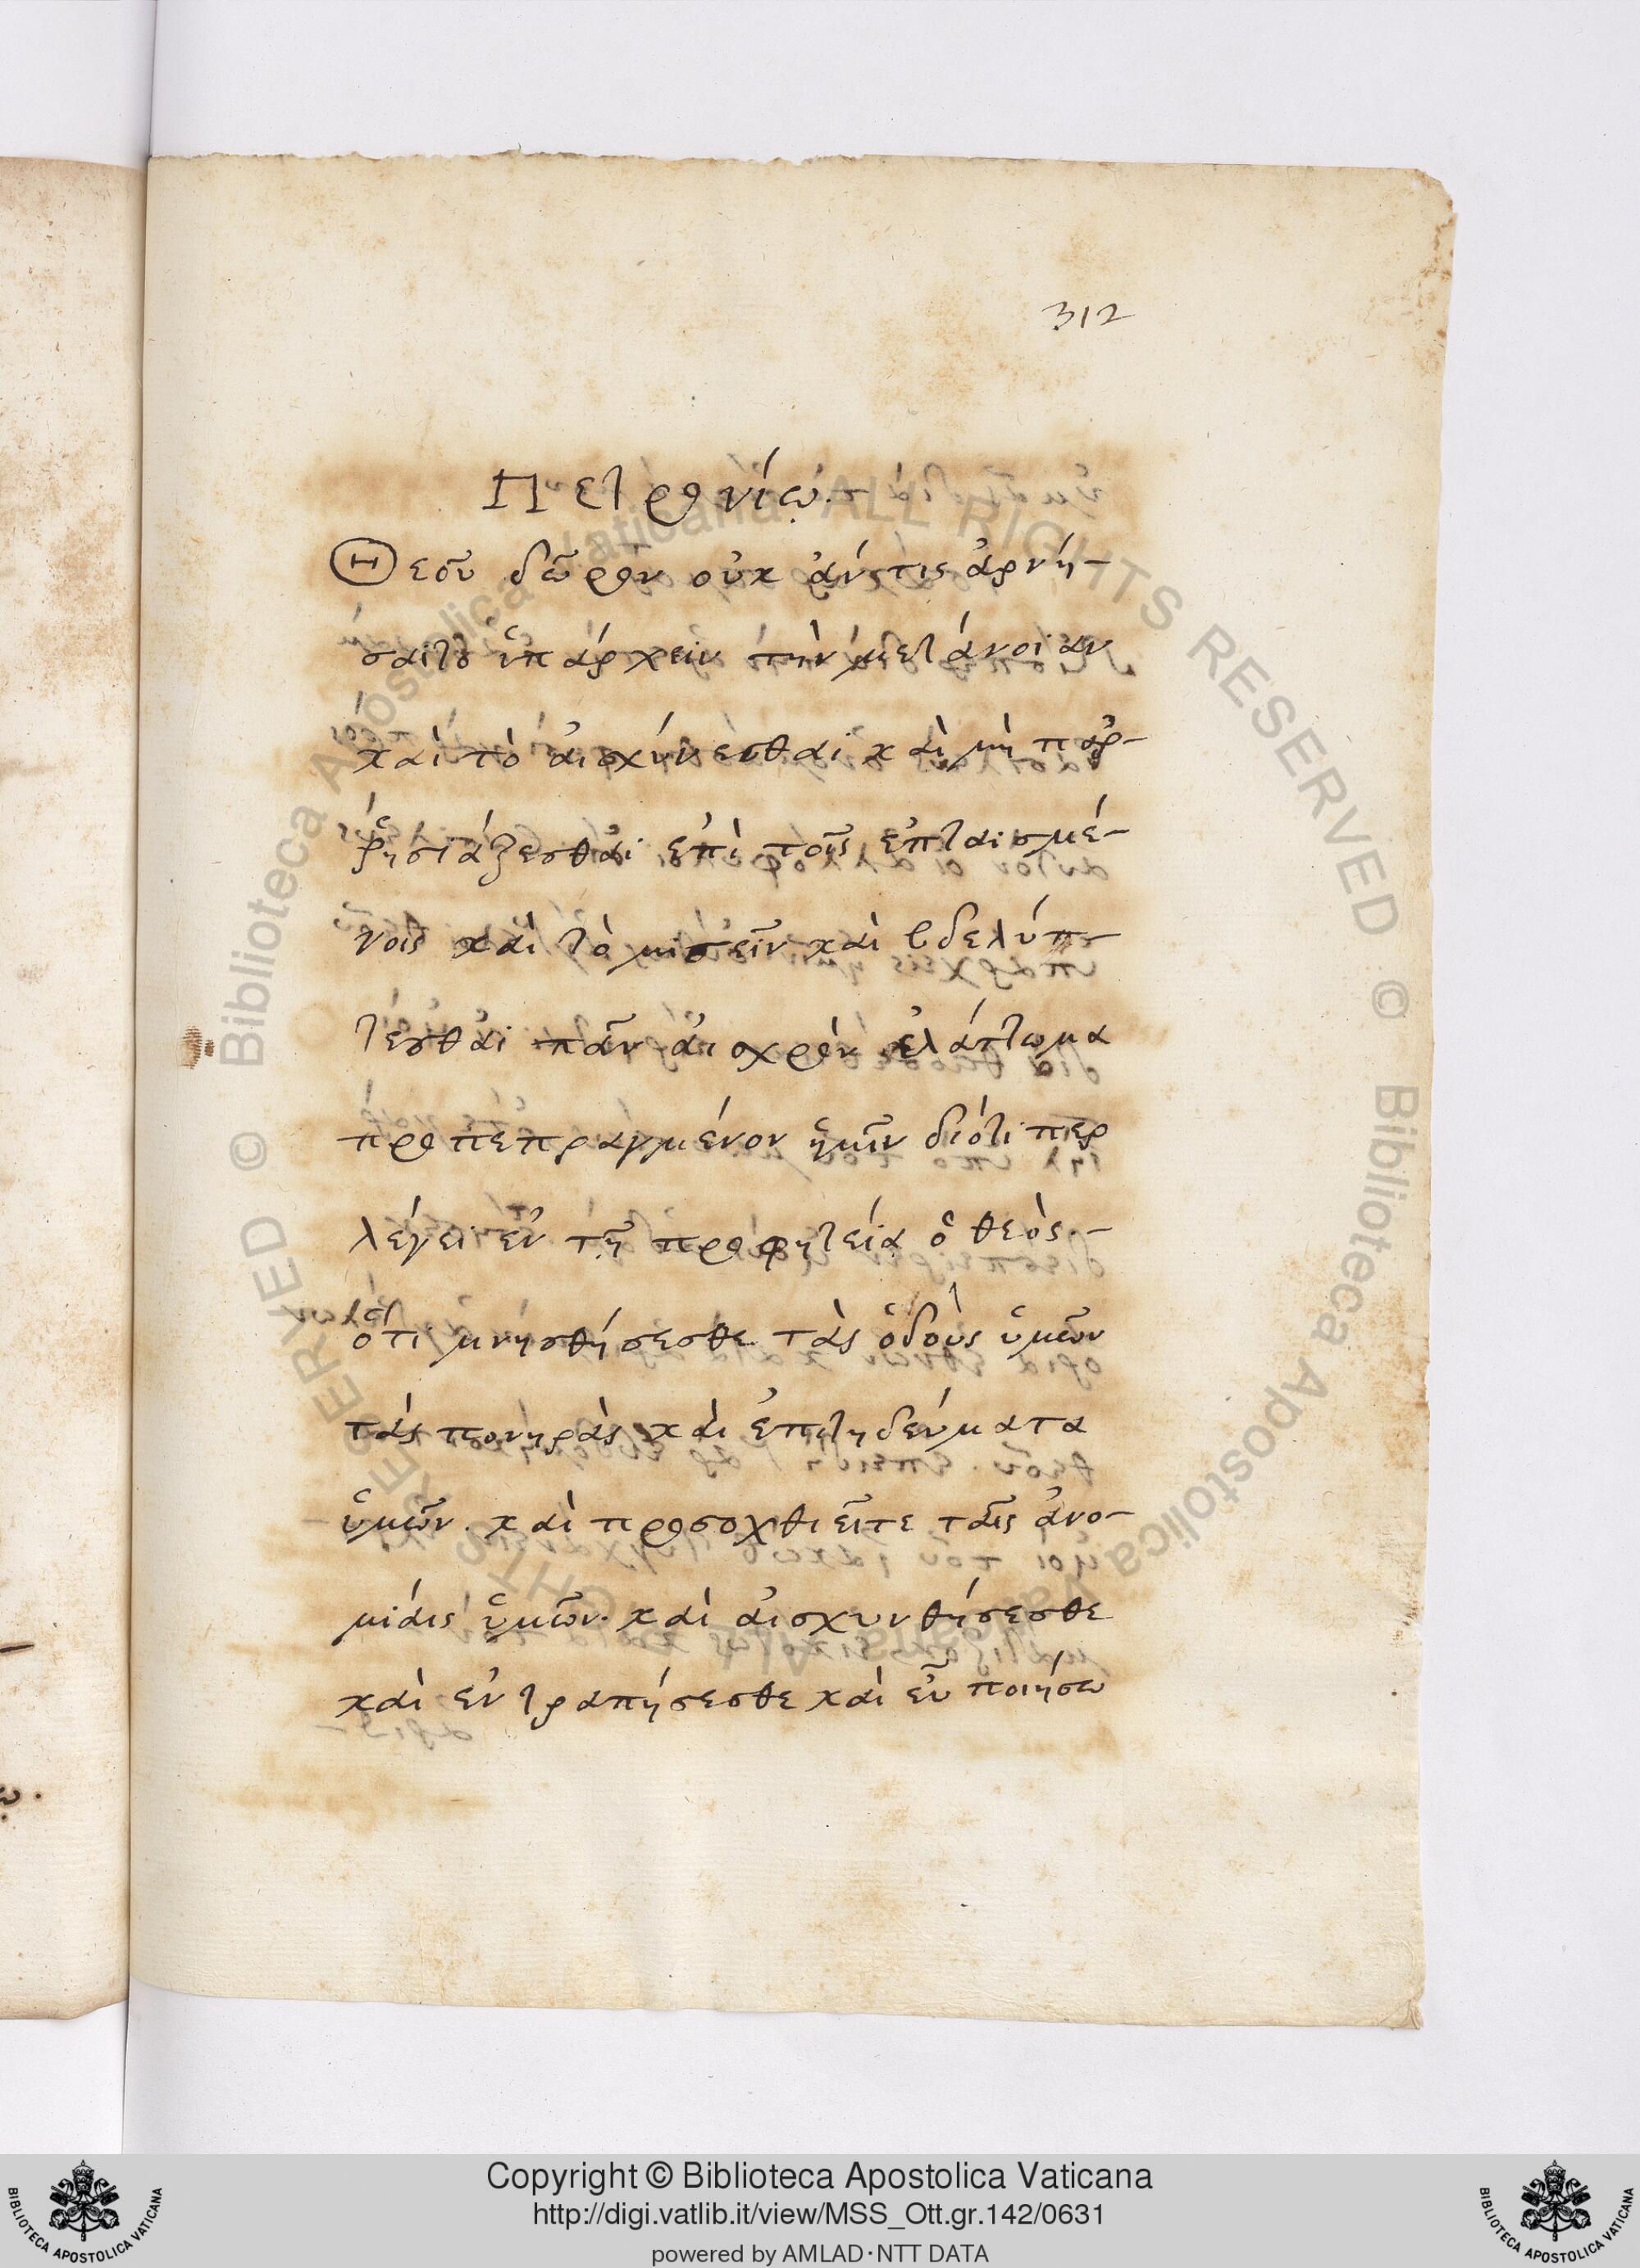 312
Πετρονίῳ.
Θεοῦ δῶρον οὐκ ἄν τις ἀρνή-
σαιτο ὑπάρχειν τὴν μετάνοιαν
καὶ τὸ αἰσχύνεσθαι καὶ μὴ παῤ-
ῥησιάζεσθαι ἐπὶ τοῖς ἐπταισμέ-
νοις καὶ τὸ μισεῖν καὶ βδελύτ-
τεσθαι πᾶν αἰσχρὸν ἐλάττωμα
προπεπραγμένον ἡμῖν διότι περ
λέγει ἐν τῇ προφητεία ὁ θεὸς.-
ὅτι μνησθήσεσθε τὰς ὁδοὺς ὑμῶν
τὰς πονηρὰς καὶ ἐπιτηδεύματα
ὑμῶν. καὶ προσοχθιεῖτε ταῖς ἀνο-
μίαις ὑμῶν. καὶ αἰσχυνθήσεσθε
καὶ ἐντραπήσεσθε καὶ εὖ ποιήσω
Copyright © Biblioteca Apostolica Vaticana
http://digi.vatlib.it/view/MSS_Ott.gr.142/0631
powered by AMLAD·NTT DATA